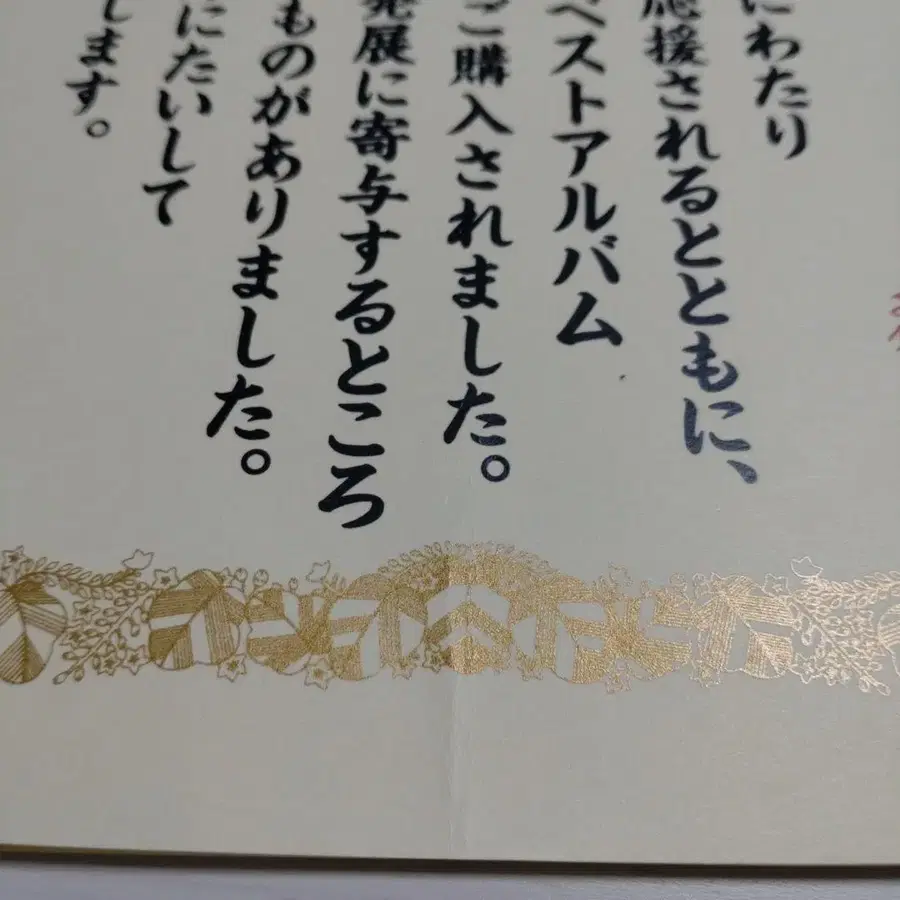 にわたり
応援されるとともに、
ベストアルバム
ご購入されました。
発展に寄与するところ
ものがありました。
にたいして
します。